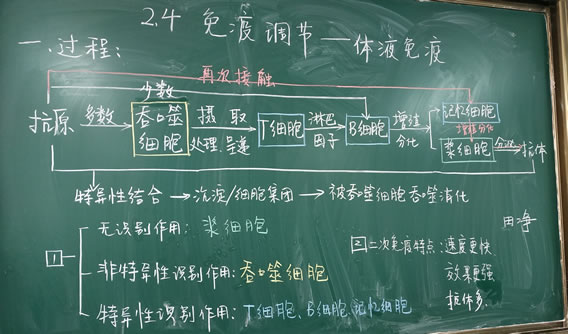 2.4 免疫调节—体液免疫
一.过程:
再次接触
少数
抗原 多数 吞噬细胞 摄取 处理,呈递 T细胞 淋巴因子 B细胞 增殖分化 记忆细胞
增殖分化
浆细胞 分泌 抗体
特异性结合→沉淀/细胞集团→被吞噬细胞吞噬消化
田净
1 无识别作用:浆细胞
非特异性识别作用:吞噬细胞
特异性识别作用:T细胞、B细胞、记忆细胞
2 二次免疫特点:速度更快
效果更强
抗体多